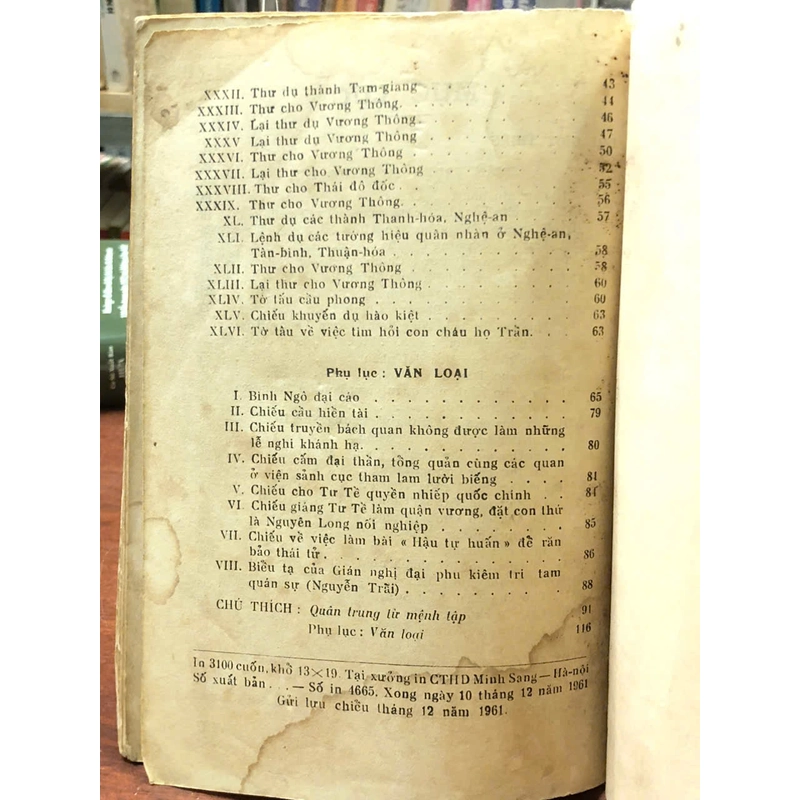 XXXII. Thư dụ thành Tam-giang . . . . . . . . 43
XXXIII. Thư cho Vương Thông. . . . . . . . . 44
XXXIV. Lại thư dụ Vương Thông. . . . . . . . 46
XXXV Lại thư dụ Vương Thông . . . . . . . . 47
XXXVI. Thư cho Vương Thông . . . . . . . . 50
XXXVII. Lại thư cho Vương Thông . . . . . . . 52
XXXVIII. Thư cho Thái đô đốc . . . . . . . . . 55
XXXIX. Thư cho Vương Thông. . . . . . . . . 56
XL. Thư dụ các thành Thanh-hóa, Nghệ-an . . . . 57
XLI. Lệnh dụ các tướng hiệu quân nhân ở Nghệ-an,
Tân-bình, Thuận-hóa . . . . . . . . . 58
XLII. Thư cho Vương Thông . . . . . . . . 58
XLIII. Lại thư cho Vương Thông . . . . . . . 60
XLIV. Tờ tấu cầu phong . . . . . . . . . 60
XLV. Chiếu khuyến dụ hào kiệt . . . . . . . 63
XLVI. Tờ tâu về việc tìm hỏi con cháu họ Trần. . . . 63
Phụ lục : VĂN LOẠI
I. Bình Ngô đại cáo . . . . . . . . . 65
II. Chiếu cầu hiền tài . . . . . . . . . 79
III. Chiếu truyền bách quan không được làm những
lễ nghi khánh hạ. . . . . . . . . . . 80
IV. Chiếu cấm đại thần, tổng quản cùng các quan
ở viện sảnh cục tham lam lười biếng . . . . 81
V. Chiếu cho Tư Tề quyền nhiếp quốc chính . . . 84
VI. Chiếu giáng Tư Tề làm quận vương, đặt con thứ
là Nguyên Long nối nghiệp . . . . . . . 85
VII. Chiếu về việc làm bài « Hậu tự huấn » để răn
bảo thái tử . . . . . . . . . . . . 86
VIII. Biểu tạ của Gián nghị đại phu kiêm tri tam
quán sự (Nguyễn Trãi) . . . . . . . . 88
CHÚ THÍCH : Quân trung từ mệnh tập 91
Phụ lục : Văn loại 116
In 3100 cuốn, khổ 13×19. Tại xưởng in CTHD Minh Sang — Hà-nội
Số xuất bản. . . — Số in 4665. Xong ngày 10 tháng 12 năm 1961
Gửi lưu chiểu tháng 12 năm 1961.